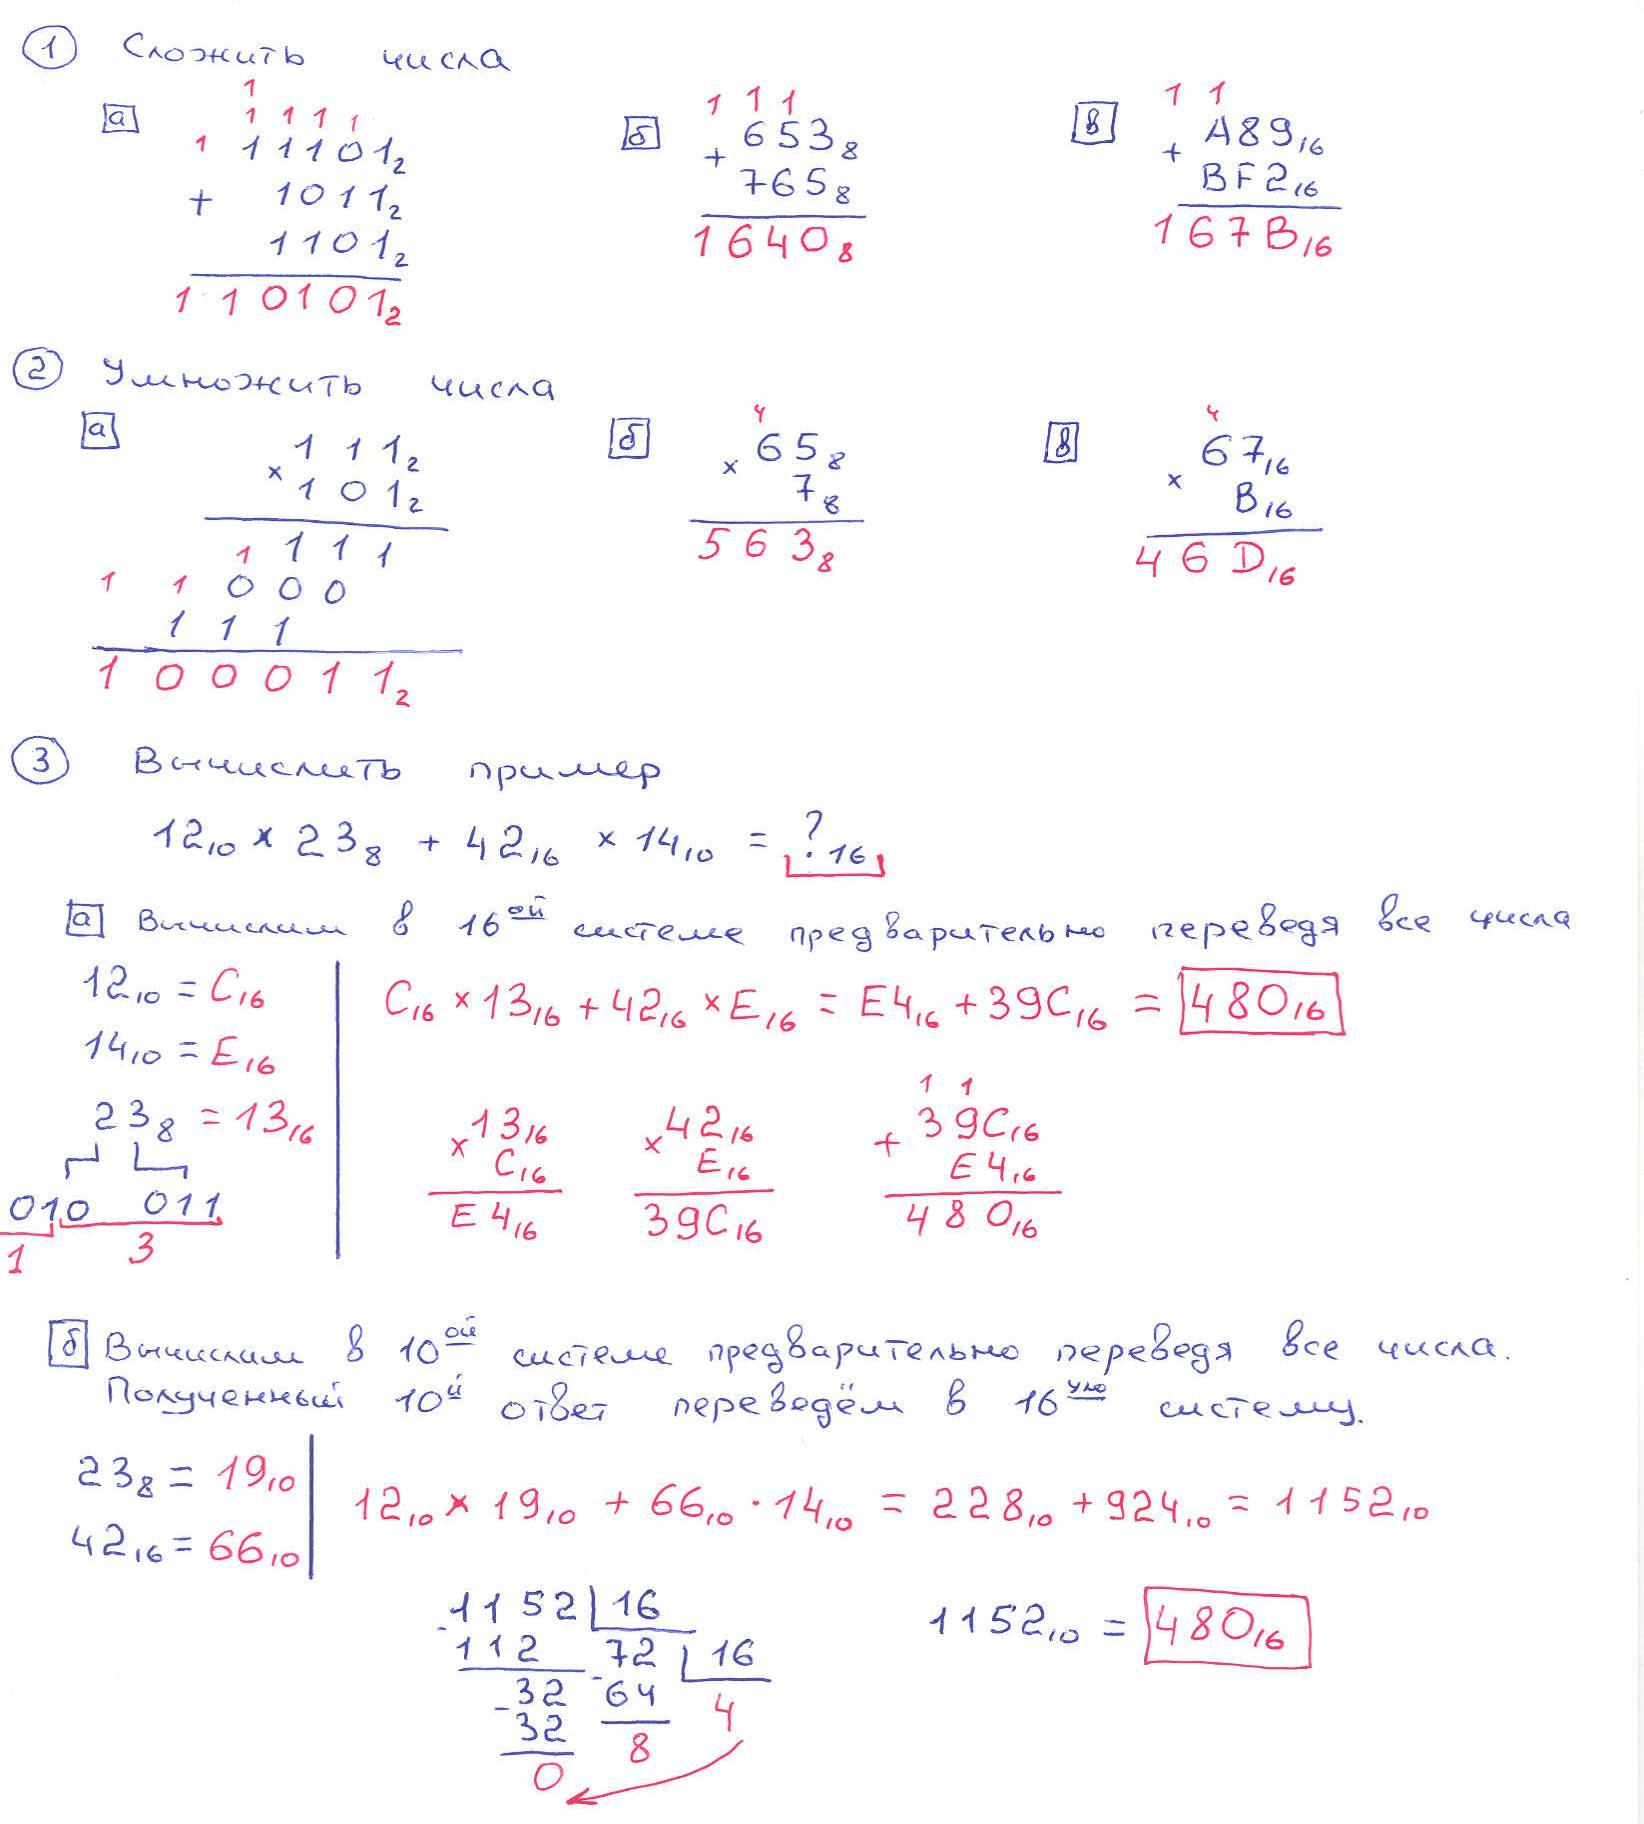 1 Сложить числа
а
1
1 1 1 1
1 11101₂
+ 1011₂
1101₂
110101₂
б
1 1 1
+ 653₈
765₈
1640₈
в
1 1
+ A89₁₆
BF2₁₆
167B₁₆
2 Умножить числа
а
× 111₂
101₂
1 1 1 1
1 1 0 0 0
1 1 1
1 0 0 0 1 1₂
б
4
× 65₈
7₈
563₈
в
4
× 67₁₆
B₁₆
46D₁₆
3 Вычислить пример
12₁₀ × 23₈ + 42₁₆ × 14₁₀ = ?₁₆
а Вычислим в 16ой системе предварительно переведя все числа
12₁₀ = C₁₆
14₁₀ = E₁₆
23₈ = 13₁₆
010 011
1 3
C₁₆ × 13₁₆ + 42₁₆ × E₁₆ = E4₁₆ + 39C₁₆ = 480₁₆
× 13₁₆
C₁₆
E4₁₆
× 42₁₆
E₁₆
39C₁₆
1 1
+ 39C₁₆
E4₁₆
480₁₆
б Вычислим в 10ой системе предварительно переведя все числа.
Полученный 10й ответ переведём в 16ую систему.
23₈ = 19₁₀
42₁₆ = 66₁₀
12₁₀ × 19₁₀ + 66₁₀ · 14₁₀ = 228₁₀ + 924₁₀ = 1152₁₀
- 1152 16
112 72 16
- 32 - 64 4
32 8
0
1152₁₀ = 480₁₆